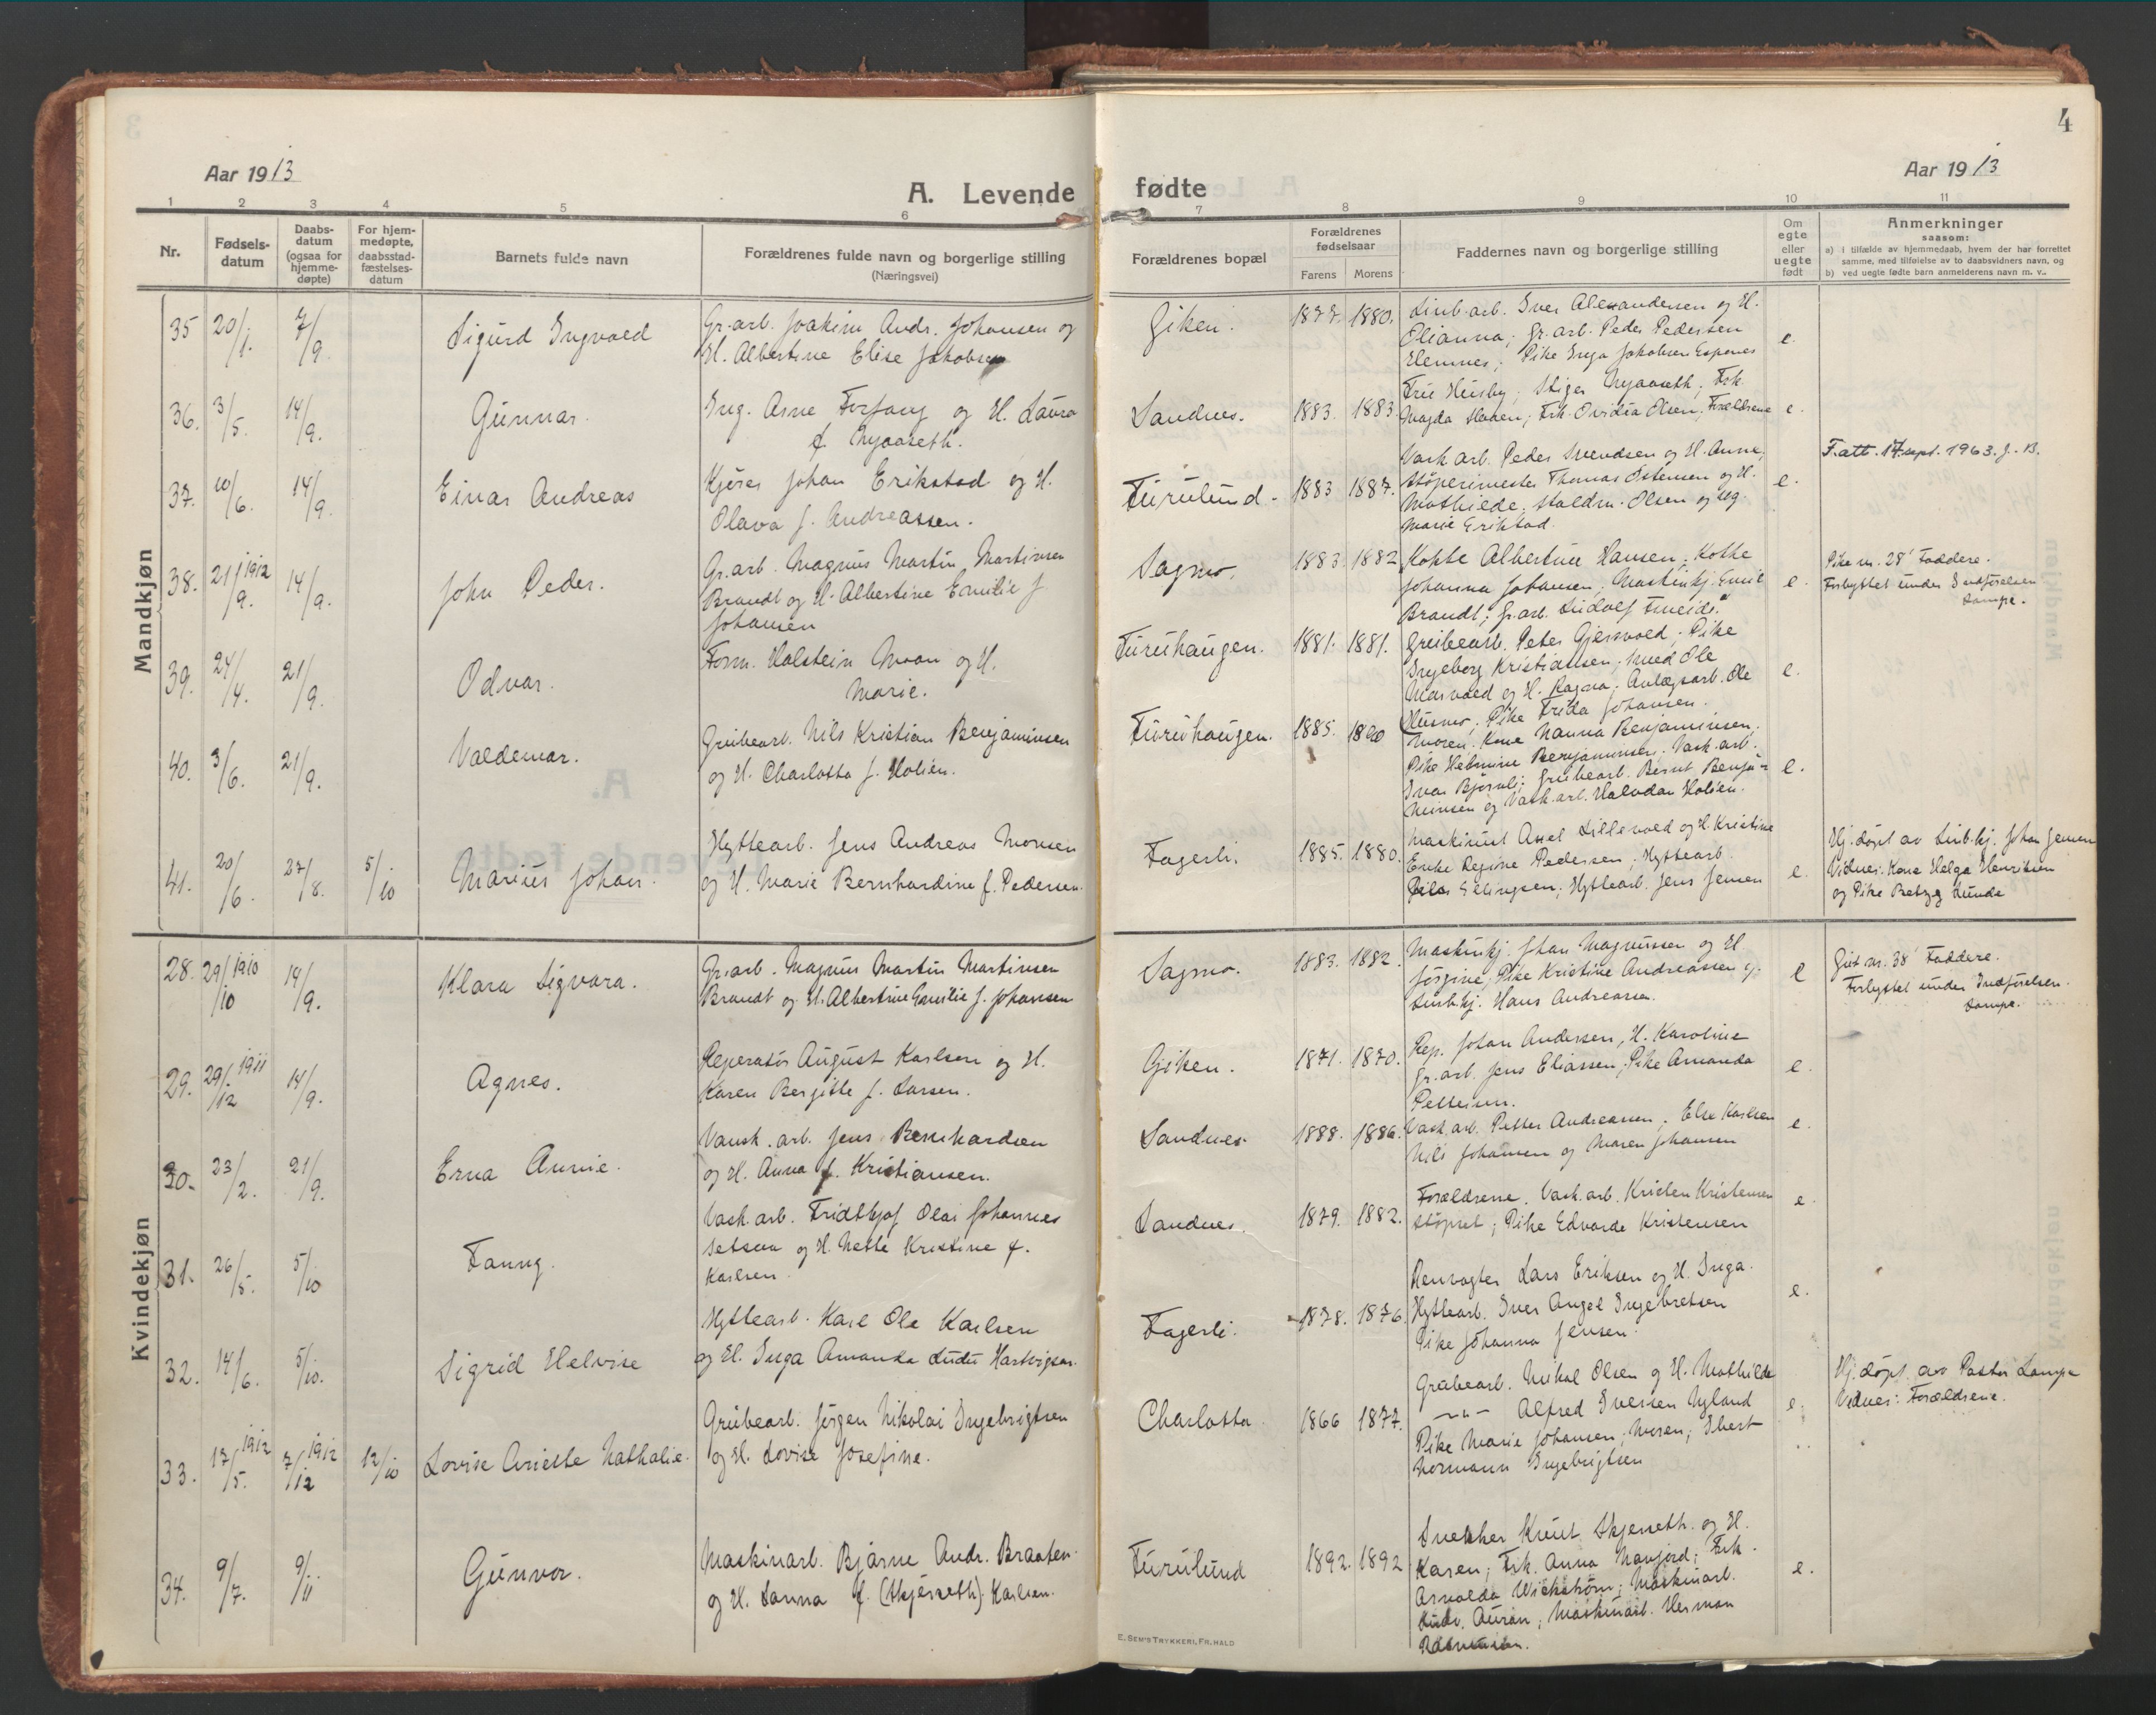 Aar 1913
A. Levende
1 2 3 4 5 6
Nr.
Fødsels-
datum
Daabs-
datum
(ogsaa for
hjemme-
døpte)
For hjem-
medøpte,
daabsstad-
fæstelses-
datum
Barnets fulde navn
Forældrenes fulde navn og borgerlige stilling
(Næringsvei)
Mandkjøn
35 20/1. 7/9. Sigurd Ingvald
Gr.arb. Joakim Andr. Johansen og
H. Albertine Elise Jakobsen
36. 3/5. 14/9. Gunnar.
Ing. Arne Forfang og H. Laura
f. Nyaaseth.
37. 10/6. 14/9. Einar Andreas
Kjører Johan Erikstad og H.
Olava f. Andreassen.
38. 21/9. 1912 14/9. John Peder.
Gr.arb. Magnus Martin Martinsen
Brandt og H. Albertine Emilie f.
Johansen
39. 24/4. 21/9. Odvar.
Form. Holstein Moan og H.
Marie.
40. 3/6. 21/9. Valdemar.
Grubearb. Nils Kristian Benjaminsen
og H. Charlotta f. Holien.
41. 20/6. 27/8. 5/10 Marius Johan.
Hyttearb. Jens Andreas Monsen
og H. Marie Bernhardine f. Pedersen.
Kvindekjøn
28. 29/10 1910 14/9. Klara Sigvara.
Gr.arb. Magnus Martin Martinsen
Brandt og H. Albertine Emilie f. Johansen
29. 29/12 1911 14/9. Agnes.
Reperatør August Karlsen og H.
Karen Bergitte f. Larsen.
30. 23/2. 21/9. Erna Annie.
Vask.arb. Jens Bernhardsen
og H. Anna f. Kristiansen.
31. 26/5. 5/10 Fanny.
Vask.arb. Fridthjof Olai Johannes
Setsaa og H. Nette Kristine f.
Karlsen.
32. 14/6. 5/10. Sigrid Helvise
Hyttearb. Karl Ole Karlsen
og H. Inga Amanda Hartvigsen.
33. 17/5. 1912 7/12 1912 12/10 Lovise Ariette Nathalie.
Grubearb. Jørgen Nikolai Ingebrigtsen
og H. Lovise Josefine.
34. 9/7. 9/11 Gunvor.
Maskinarb. Bjarne Andr. Braaten
og H. Sanna f. (Skjerseth) Karlsen.
4
Aar 1913
fødte
7 8 9 10 11
Forældrenes bopæl
Forældrenes
fødselsaar
Farens Morens
Faddernes navn og borgerlige stilling
Om
egte
eller
uegte
født
Anmerkninger
saasom:
a) i tilfælde av hjemmedaab, hvem der har forrettet
samme, med tilføielse av to daabsvidners navn, og
b) ved uegte fødte barn anmelderens navn m. v..
Giken. 1877. 1880. e.
Linb.arb. Iver Alexandersen og H.
Olianna; Gr.arb. Peder Pedersen
Hemnes; Pike Inga Jakobsen Espenes
Sandnes. 1883. 1883. e.
Fru Husby; Stiger Nyaaseth; Frk.
Magda Hansen; Frk. Ovidia Olsen; Forældrene
Furulund. 1883 1887. e.
Vask.arb. Peder Svendsen og H. Anna;
Støperimester Thomas Østensen og H.
Mathilde; Staldm. Olsen og ug.
Marie Erikstad.
F.att. 17 sept. 1963. J. B.
Sagmo. 1883. 1882 e.
Kokke Albertine Hansen; Kokke
Johanna Johansen; Maskinkj. Emil
Brandt; Gr.arb. Ludolf Fineide.
Pike nr. 28' Faddere.
Forbyttet under Indførelsen
Lampe.
Furuhaugen. 1881. 1881. e.
Grubearb. Peter Gjersvold; Pike
Ingeborg Kristiansen; Smed Ole
Marvold og H. Ragna; Anlægsarb. Ole
Husmo; Pike Frida Johansen.
Furuhaugen. 1885. 1890 e.
Moren; Kone Nanna Benjaminsen;
Pike Helmine Benjaminsen; Vask.arb.
Ivar Bjørnli; Grubearb. Bernt Benja-
minsen og Vask.arb. Halvdan Holien.
Fagerli. 1885. 1880. e.
Maskinist Axel Lillevold og H. Kristine
Enke Regine Pedersen; Hyttearb.
Ellingsen; Hyttearb. Jens Jensen
Hj.døpt av Linb.kj. Johan Jensen
Vidner: Kone Helga Henriksen
og Pike Betzy Lunde
Sagmo. 1883. 1882. e
Maskinkj. Johan Magnussen og H.
Jørgine, Pike Kristine Andreassen og
Linb.kj. Hans Andreassen.
Gut nr. 38' Faddere.
Forbyttet under Indførelsen.
Lampe.
Giken. 1871. 1870. e.
Rep. Johan Andersen, H. Karoline
Gr.arb. Jens Eliassen; Pike Amanda
Pettersen.
Sandnes 1888. 1886. e.
Vask.arb. Petter Andreassen; Else Karlsen
Nils Johansen og Maren Johansen
Sandnes. 1879. 1882. e
Forældrene. Vask.arb. Kristen Kristensen
Støpset; Pike Edvarda Kristensen
Fagerli. 1878. 1876. e.
Renvogter Lars Eriksen og H. Inga.
Hyttearb. Iver Angel Ingebretsen
Pike Johanna Jensen.
Charlotta 1866 1877. e.
Grubearb. Mikal Olsen og H. Mathilde
—"— Alfred Iversen Nyland
Pike Marie Johansen; Moren; Ebert
Normann Ingebrigtsen
Hj.døpt av Pastor Lampe
Vidner: Forældrene.
Furulund 1892. 1892 e.
Snekker Knut Skjerseth og H.
Karen; Frk. Anna Navjord; Frk.
Arnolda Wickstrøm; Maskinarb.
Ludv. Auran; Maskinarb. Herman
E. SEM'S TRYKKERI, FR.HALD